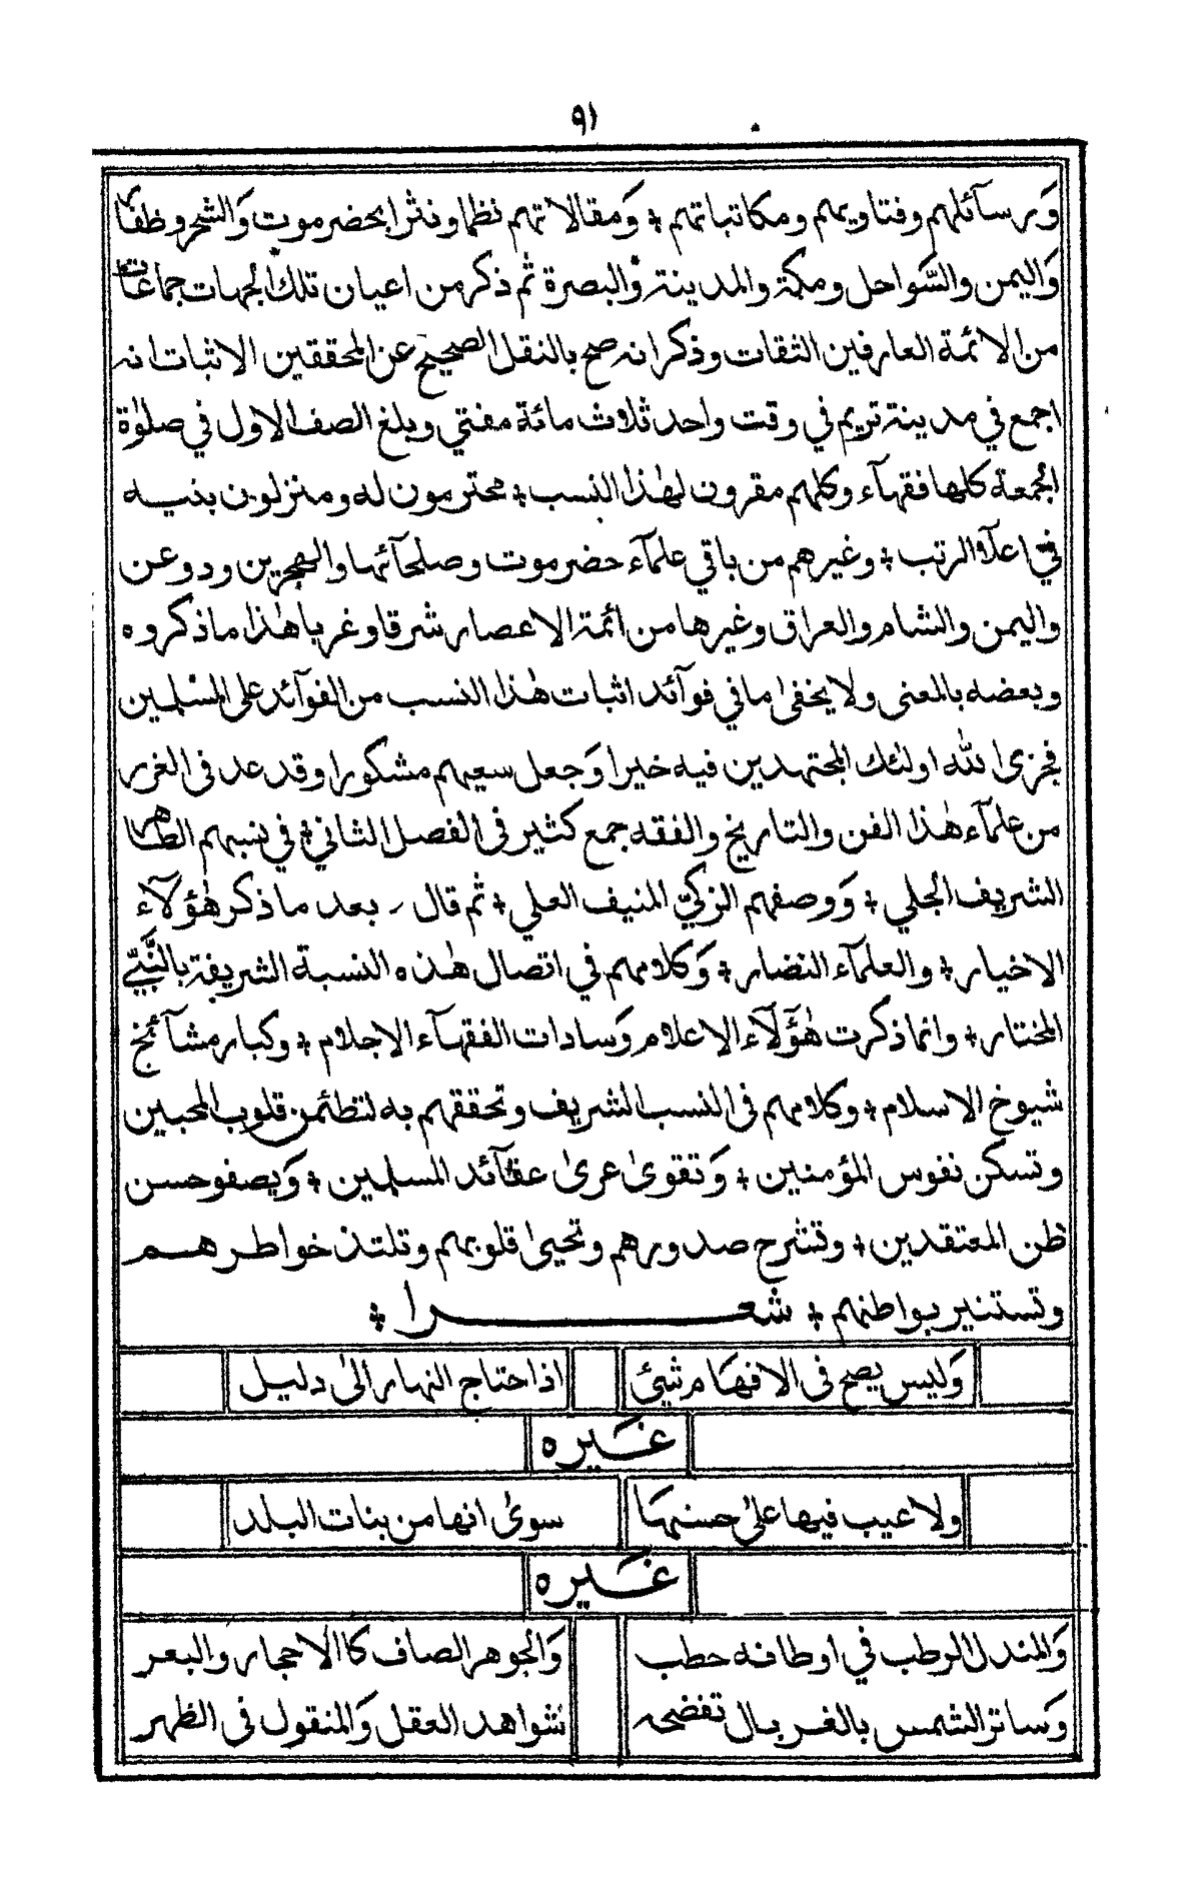 ٩١
وَرسآئلهم وفتاويهم ومكاتباتهم ؛ وَمقالاتهم نظما ونثرا بحضرموت وَالشحر وظفار
وَاليمن والسَّواحل ومكة والمدينة وَالبصرة ثم ذكر من اعيان تلك الجهات جماعات
من الائمة العارفين الثقات وذكر انه صح بالنقل الصحيح عن المحققين الاثبات انه
اجمع في مدينة تريم في وقت واحد ثلاث مائة مفتي وبلغ الصف الاول في صلوٰة
الجمعة كلها فقهآء وكلهم مقرون لهٰذا النسب ؛ محترمون له ومنزلون بنيه
في اعلآ الرتب ؛ وغيرهم من باقي علمآء حضرموت وصلحآئها والهجرين ودوعن
واليمن والشام والعراق وغيرها من ائمة الاعصار شرقا وغربا هٰذا ما ذكروه
وبعضه بالمعنى ولا يخفىٰ ما في فوآئد اثبات هٰذا النسب من الفوآئد على المسْلمين
فجزى الله اولٰئك المجتهدين فيه خيرا وَجعل سعيهم مشكورا وقد عد فى الغرر
من علمآء هٰذا الفن والتاريخ والفقه جمع كثير فى الفصل الثاني ؛ في نسبهم الطاهر
الشريف الجلي ؛ وَوصفهم الزكيّ المنيف العلي ؛ ثم قال ر بعد ما ذكر هٰؤلآء
الاخيار ؛ والعلمآء النضار ؛ وَكلامهم في اتصال هٰذه النسبة الشريفة بالنَّبيّ
المختار ؛ وانما ذكرت هٰؤلآء الاعلام وَسادات الفقهآء الاجلام ؛ وكبار مشآئخ
شيوخ الاسلام ؛ وكلامهم فى النسب الشريف وتحققهم به لتطئمن قلوب المحبين
وتسكن نفوس المؤمنين ؛ وَتقوىٰ عرىٰ عقآئد المسلمين ؛ وَيصفو حسن
ظن المعتقدين ؛ وتشرح صدورهم وتحيىٰ قلوبهم وتلتذ خواطرهم
وتستنير بواطنهم ؛ شعرا ؛
وَليس يصح فى الافهام شيئ اذا احتاج النهار الىٰ دليل
غَيره
ولا عيب فيها علىٰ حسنها سوىٰ انها من بنات البلد
غَيره
وَالمندل الرطب في اوطافه حطب وَالجوهر الصاف كاالاحجار والبعر
وَساتر الشمس بالغربال تفضحه شواهد العقل وَالمنقول فى الظهر